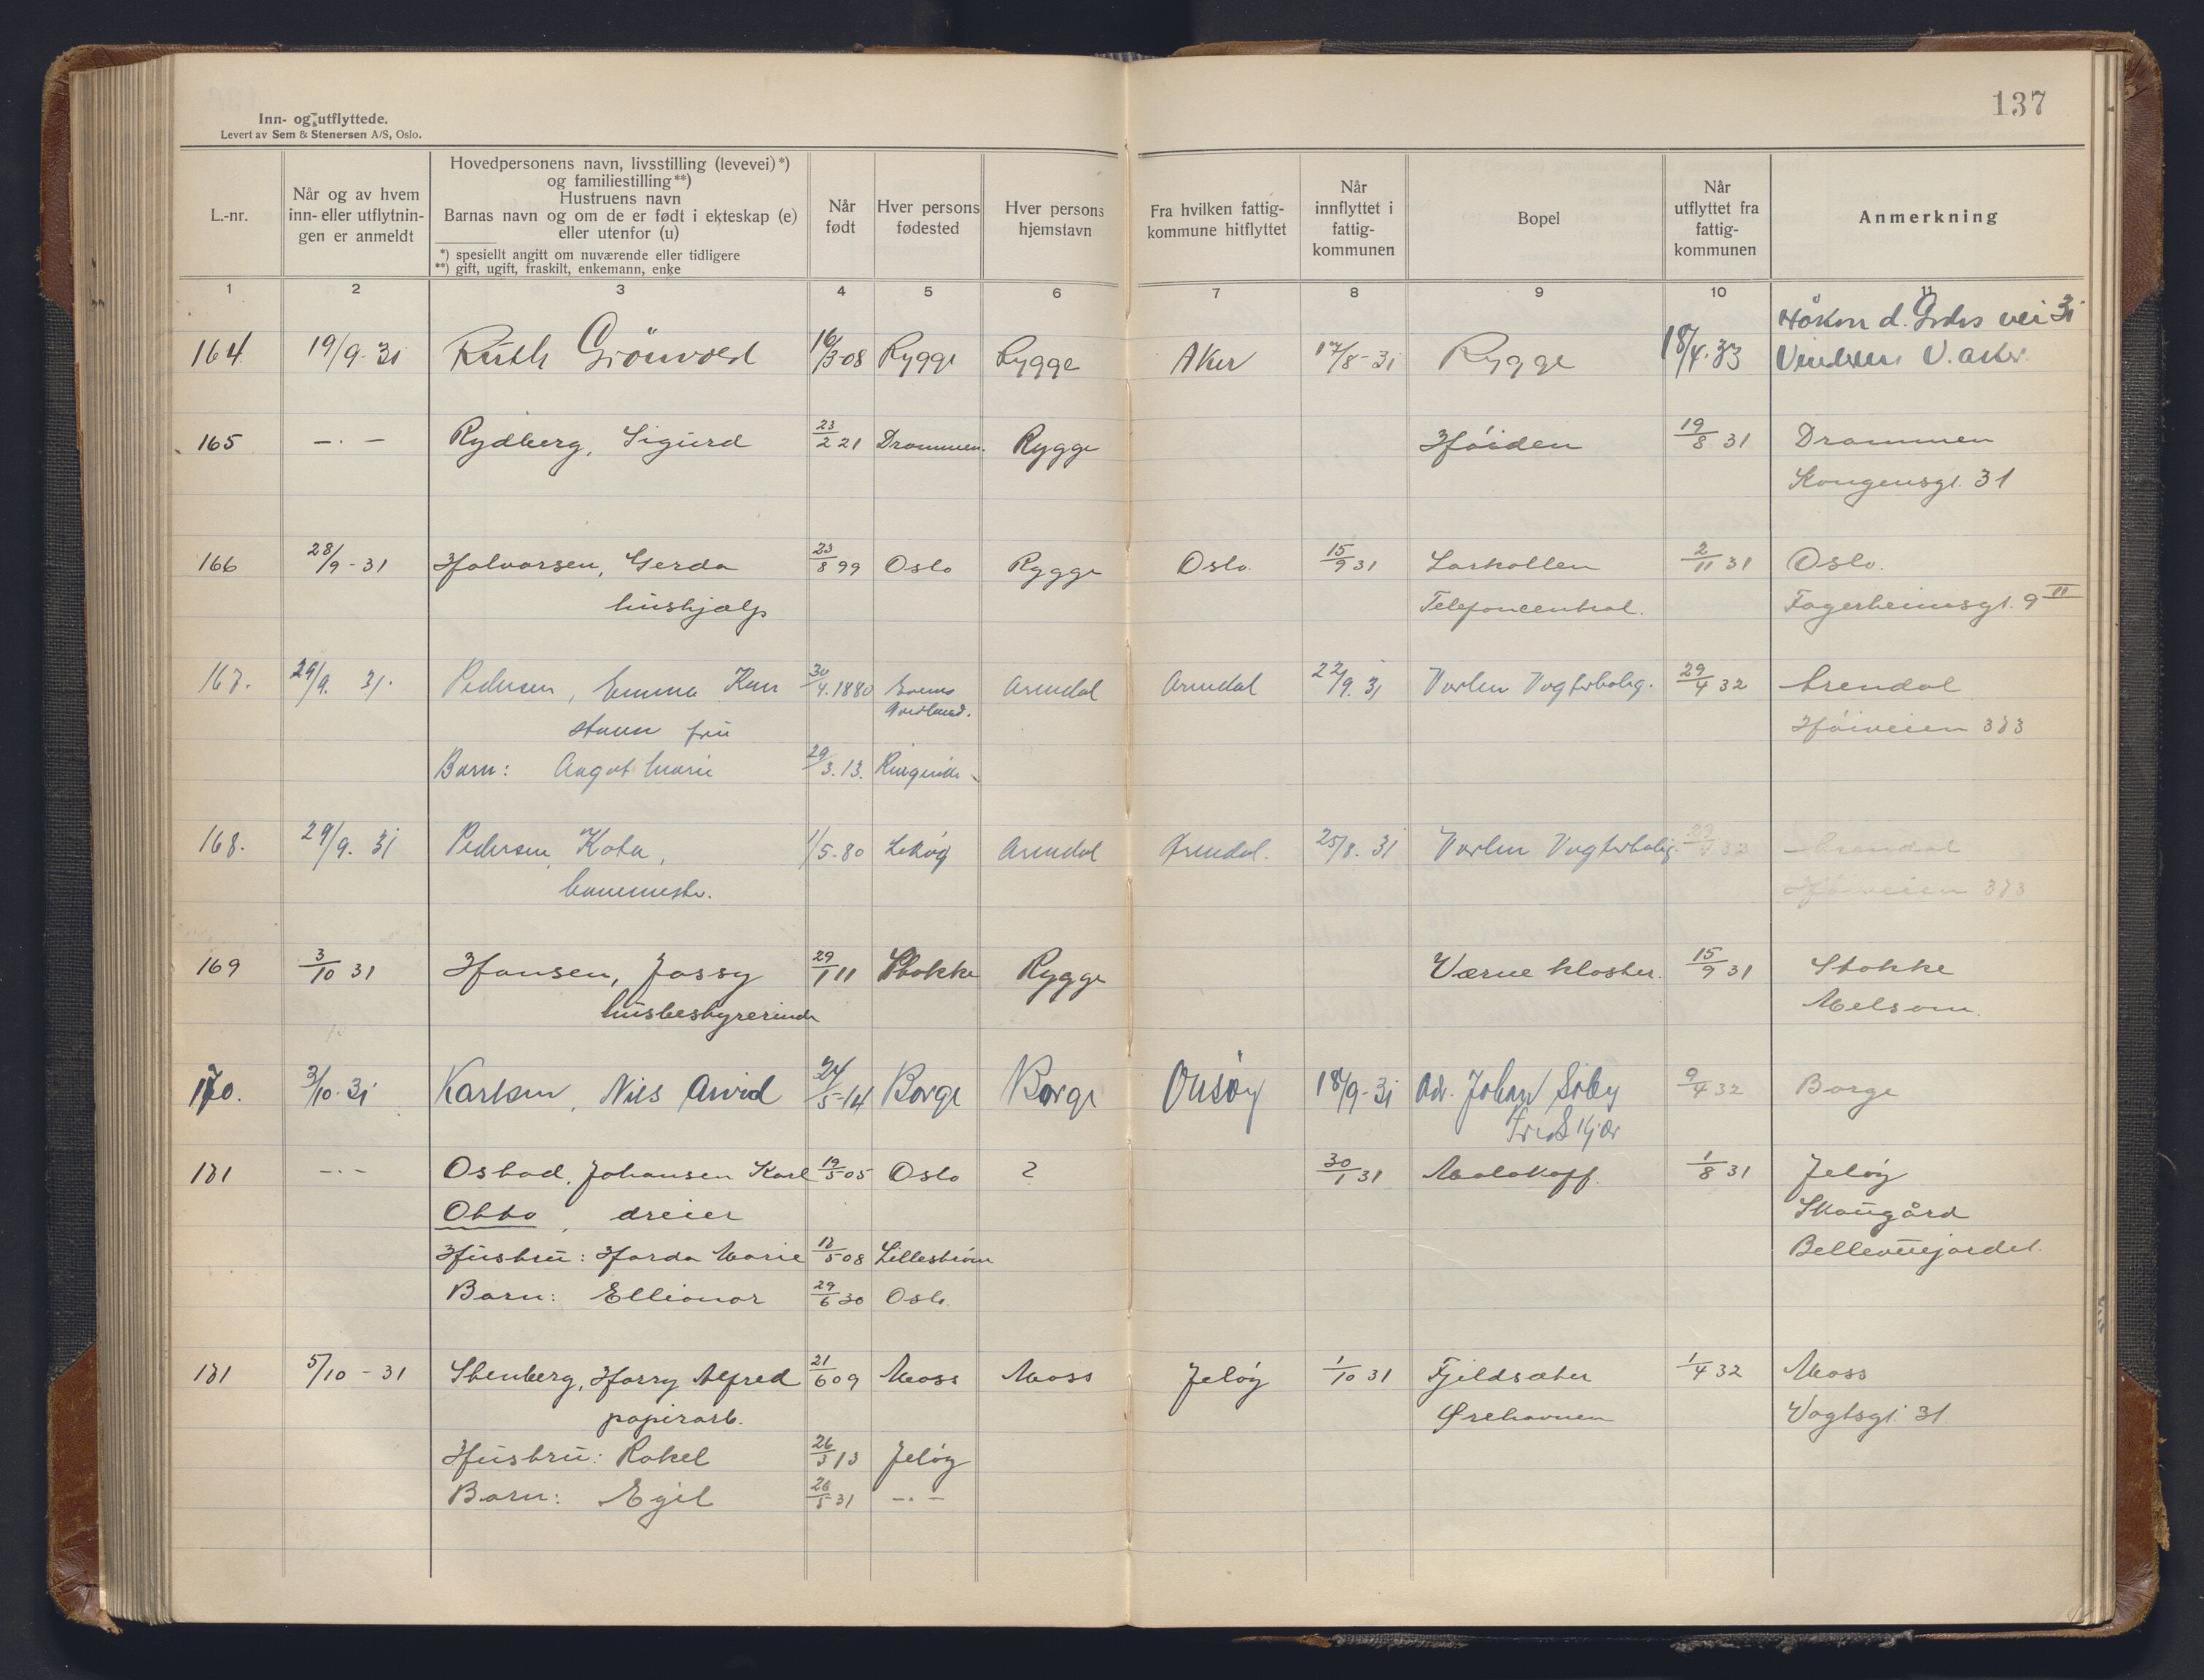 137
Inn- og utflyttede.
Levert av Sem & Stenersen A/S, Oslo.
L.-nr.
Når og av hvem
inn- eller utflytnin-
gen er anmeldt
Hovedpersonens navn, livsstilling (levevei)*)
og familiestilling**)
Hustruens navn
Barnas navn og om de er født i ekteskap (e)
eller utenfor (u)
*) spesiellt angitt om nuværende eller tidligere
**) gift, ugift, fraskilt, enkemann, enke
Når
født
Hver persons
fødested
Hver persons
hjemstavn
Fra hvilken fattig-
kommune hitflyttet
Når
innflyttet i
fattig-
kommunen
Bopel
Når
utflyttet fra
fattig-
kommunen
Anmerkning
1 2 3 4 5 6 7 8 9 10 11
Håkon d. Godes vei 31
164. 19/9-31 Ruth Grönvold 16/3-08 Rygge Rygge Aker 17/8-31 Rygge 18/4-33 Vinderen V. Aker
165 —·— Rydberg, Sigurd 23/2 21 Drammen. Rygge Høiden 19/8 31 Drammen
Kongensgt. 31
166 28/9-31 Halvorsen, Gerda 23/8 99 Oslo Rygge Oslo. 15/9 31 Larkollen 2/11 31 Oslo.
hushjælp Telefoncentral. Fagerheimsgt. 9 II
167. 29/9. 31. Pedersen, Emma 30/4.1880 Arendal Arendal 22/9. 31 Varlen Vogterbolig. 29/4 32 Arendal
fru Høiveien 373
Barn: Aagot Marie 29/3.13. Ringerike
168. 29/9. 31 Pedersen, 1/5-80 Arendal Arendal. 25/8. 31 Varlen Vogterbolig. 29/4 32 Arendal
banemester. Høiveien 373
169 3/10 31 Hansen, Jossy 29/1 11 Stokke Rygge Værne kloster. 15/9 31 Stokke
husbestyrerinde Melsom.
170. 3/10-31 Karlsen, Nils Arvid 24/5-14 Borge Borge Onsøy 18/9-31 Adr. Johan Siby 9/4 32 Borge
171 —·— Ostad, Johansen Karl 19/5 05 Oslo ? 30/1 31 Malakoff. 1/8 31 Jeløy
Otto, dreier Skaugård
Hustru: Harda Marie 17/5 08 Lillestrøm Bellevuejordet.
Barn: Ellionor 29/6 30 Oslo
171 5/10-31 Stenberg, Harry Alfred 21/6 09 Moss Moss Jeløy 1/10 31 Fjeldsæter 1/4 32 Moss
papirarb. Ørehavnen Vogtsgt. 31
Hustru: Rakel 26/3 13 Jeløy
Barn: Egil 26/5 31 —·—